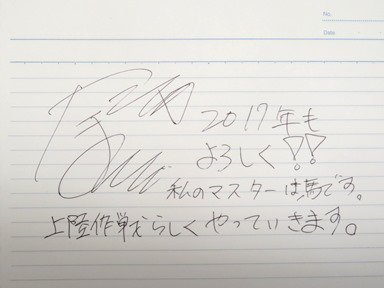 No.
Date
2017年も
よろしく!!
私のマスターは馬です。
上陸作戦らしくやっていきます。